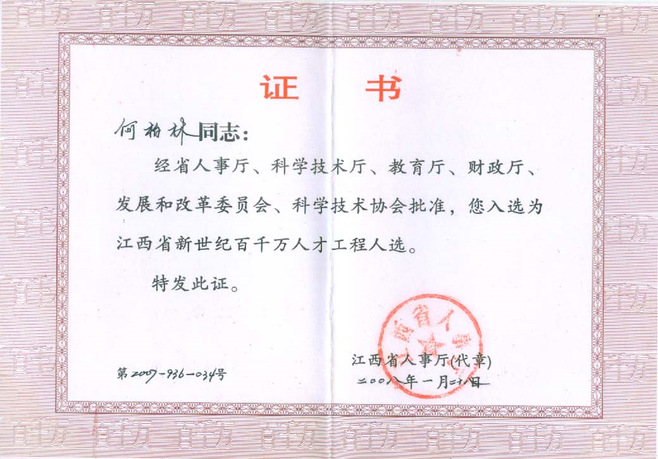 证 书
何柏林同志：
经省人事厅、科学技术厅、教育厅、财政厅、
发展和改革委员会、科学技术协会批准，您入选为
江西省新世纪百千万人才工程人选。
特发此证。
江西省人事厅
江西省人事厅(代章)
第2007-936-034号
二〇〇八年一月二十八日
百千万